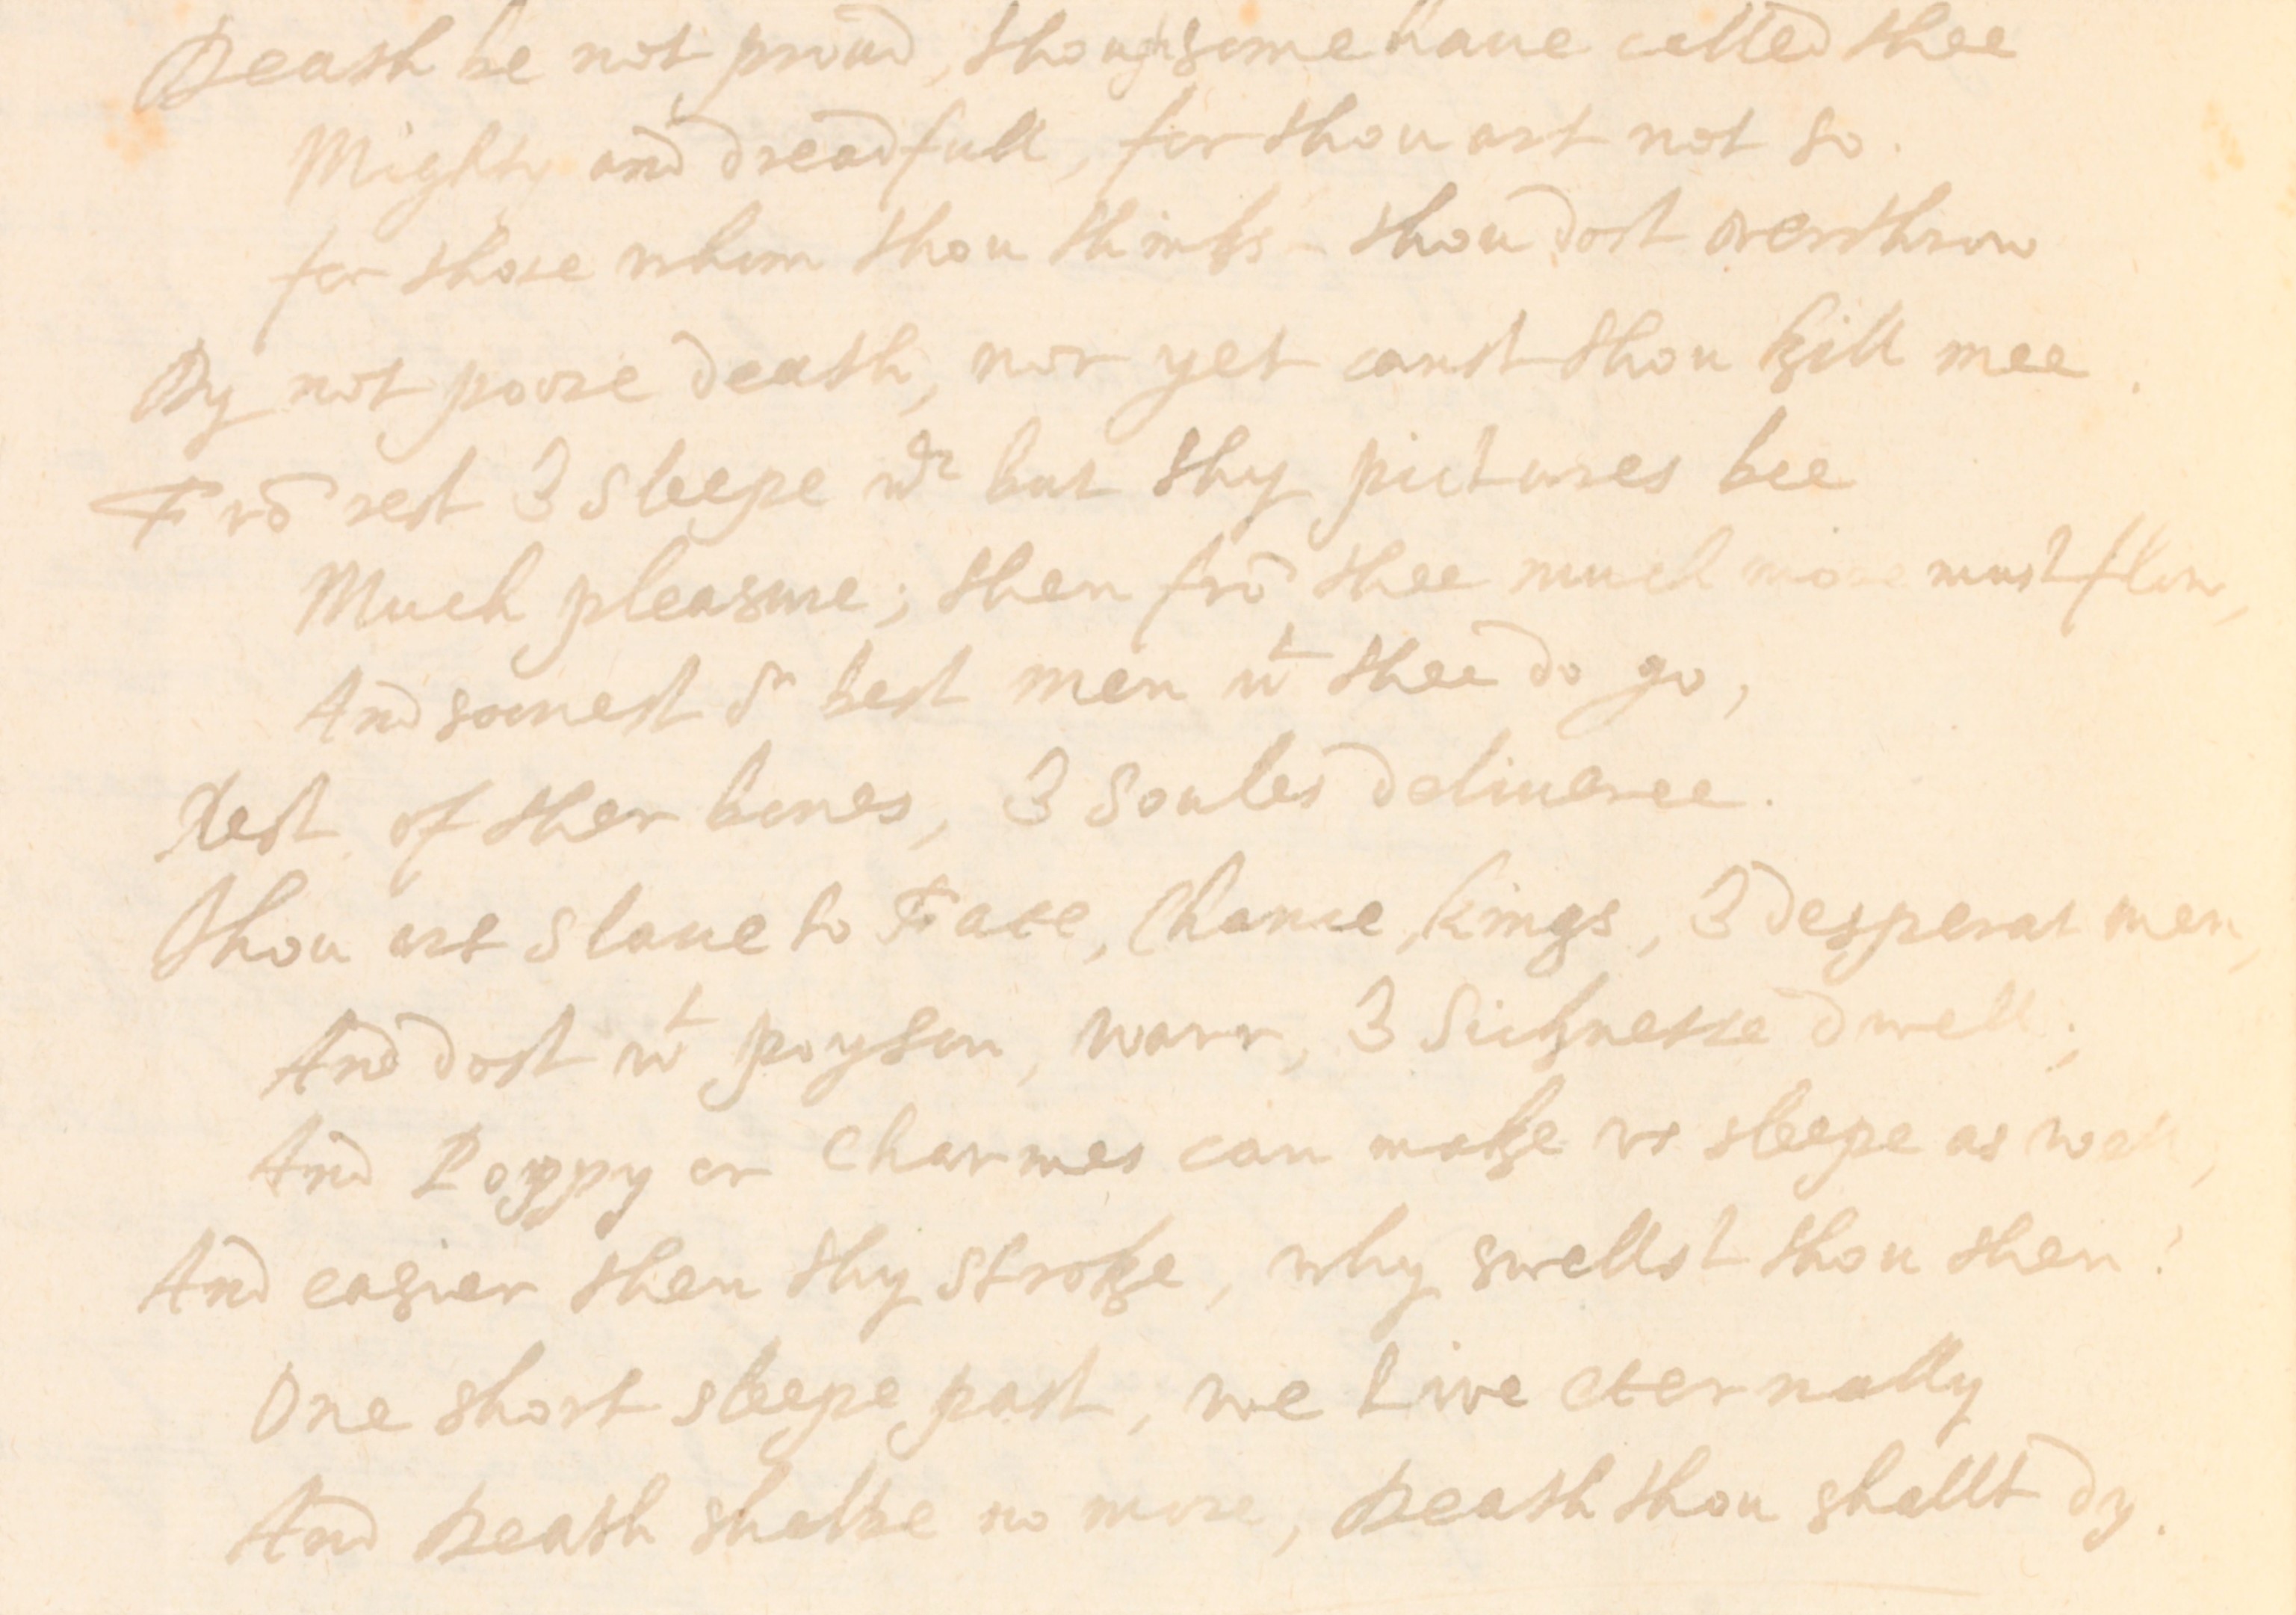 Death be not proud, though some haue called thee
Mighty and dreadfull, for thou art not so.
for those whom thou thinks thou dost overthrow
Dy not poore death, nor yet canst thou kill mee.
Frō rest & sleepe wch but thy pictures bee
Much pleasure; then frō thee much more must flow,
And soonest or best men wt thee do go,
Rest of ther bones, & Soules deliueree.
Thou art slaue to Fate, Chance, kings, & desperat men,
And dost wt poyson, warr, & Sicknesse dwell;
And Poppy or Charmes can make vs sleepe as well,
And easier then thy stroke, why swellst thou then?
One short sleepe past, we Live eternally
And Death shalbe no more, Death thou shallt dy.